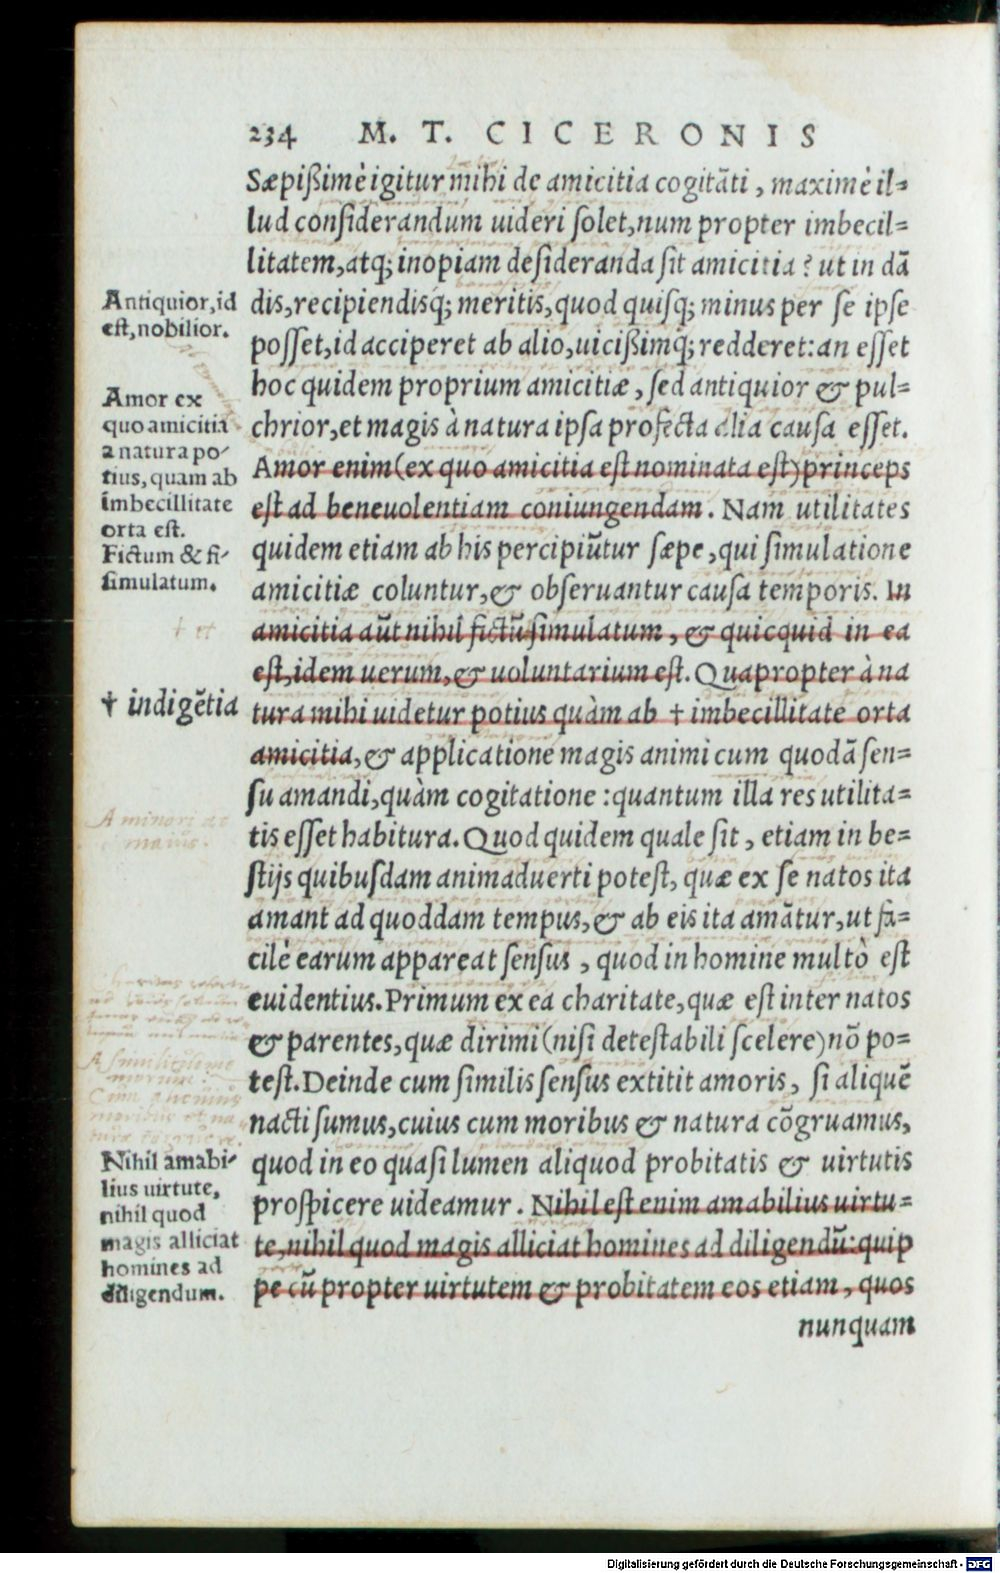 234 M. T. CICERONIS
Sæpißimè igitur mihi de amicitia cogitāti, maximè il=
lud considerandum uideri solet, num propter imbecil=
litatem, atq; inopiam desideranda sit amicitia? ut in dā
dis, recipiendisq́; meritis, quod quisq; minus per se ipse
posset, id acciperet ab alio, uicißimq́; redderet: an esset
hoc quidem proprium amicitiæ, sed antiquior & pul=
chrior, et magis à natura ipsa profecta alia causa esset.
Amor enim (ex quo amicitia est nominata est) princeps
est ad beneuolentiam coniungendam. Nam utilitates
quidem etiam ab his percipiūtur sæpe, qui simulatione
amicitiæ coluntur, & obseruantur causa temporis. In
amicitia aūt nihil fictū simulatum, & quicquid in ea
est, idem uerum, & uoluntarium est. Quapropter à na
tura mihi uidetur potius quàm ab † imbecillitate orta
amicitia, & applicatione magis animi cum quodā sen=
su amandi, quàm cogitatione: quantum illa res utilita=
tis esset habitura. Quod quidem quale sit, etiam in be=
stijs quibusdam animaduerti potest, quæ ex se natos ita
amant ad quoddam tempus, & ab eis ita amātur, ut fa=
cilè earum appareat sensus, quod in homine multò est
euidentius. Primum ex ea charitate, quæ est inter natos
& parentes, quæ dirimi (nisi detestabili scelere) nō po=
test. Deinde cum similis sensus extitit amoris, si aliquē
nacti sumus, cuius cum moribus & natura cōgruamus,
quod in eo quasi lumen aliquod probitatis & uirtutis
prospicere uideamur. Nihil est enim amabilius uirtu=
te, nihil quod magis alliciat homines ad diligendū: quip
pe cū propter uirtutem & probitatem eos etiam, quos
nunquam
Antiquior, id
est, nobilior.
Amor ex
quo amicitia
a natura po-
tius, quam ab
imbecillitate
orta est.
Fictum & si-
simulatum.
† et
† indigētia
A minori ad
maius.
A similitudine
morum.
Nihil amabi-
lius uirtute,
nihil quod
magis alliciat
homines ad
diligendum.
Digitalisierung gefördert durch die Deutsche Forschungsgemeinschaft - DFG